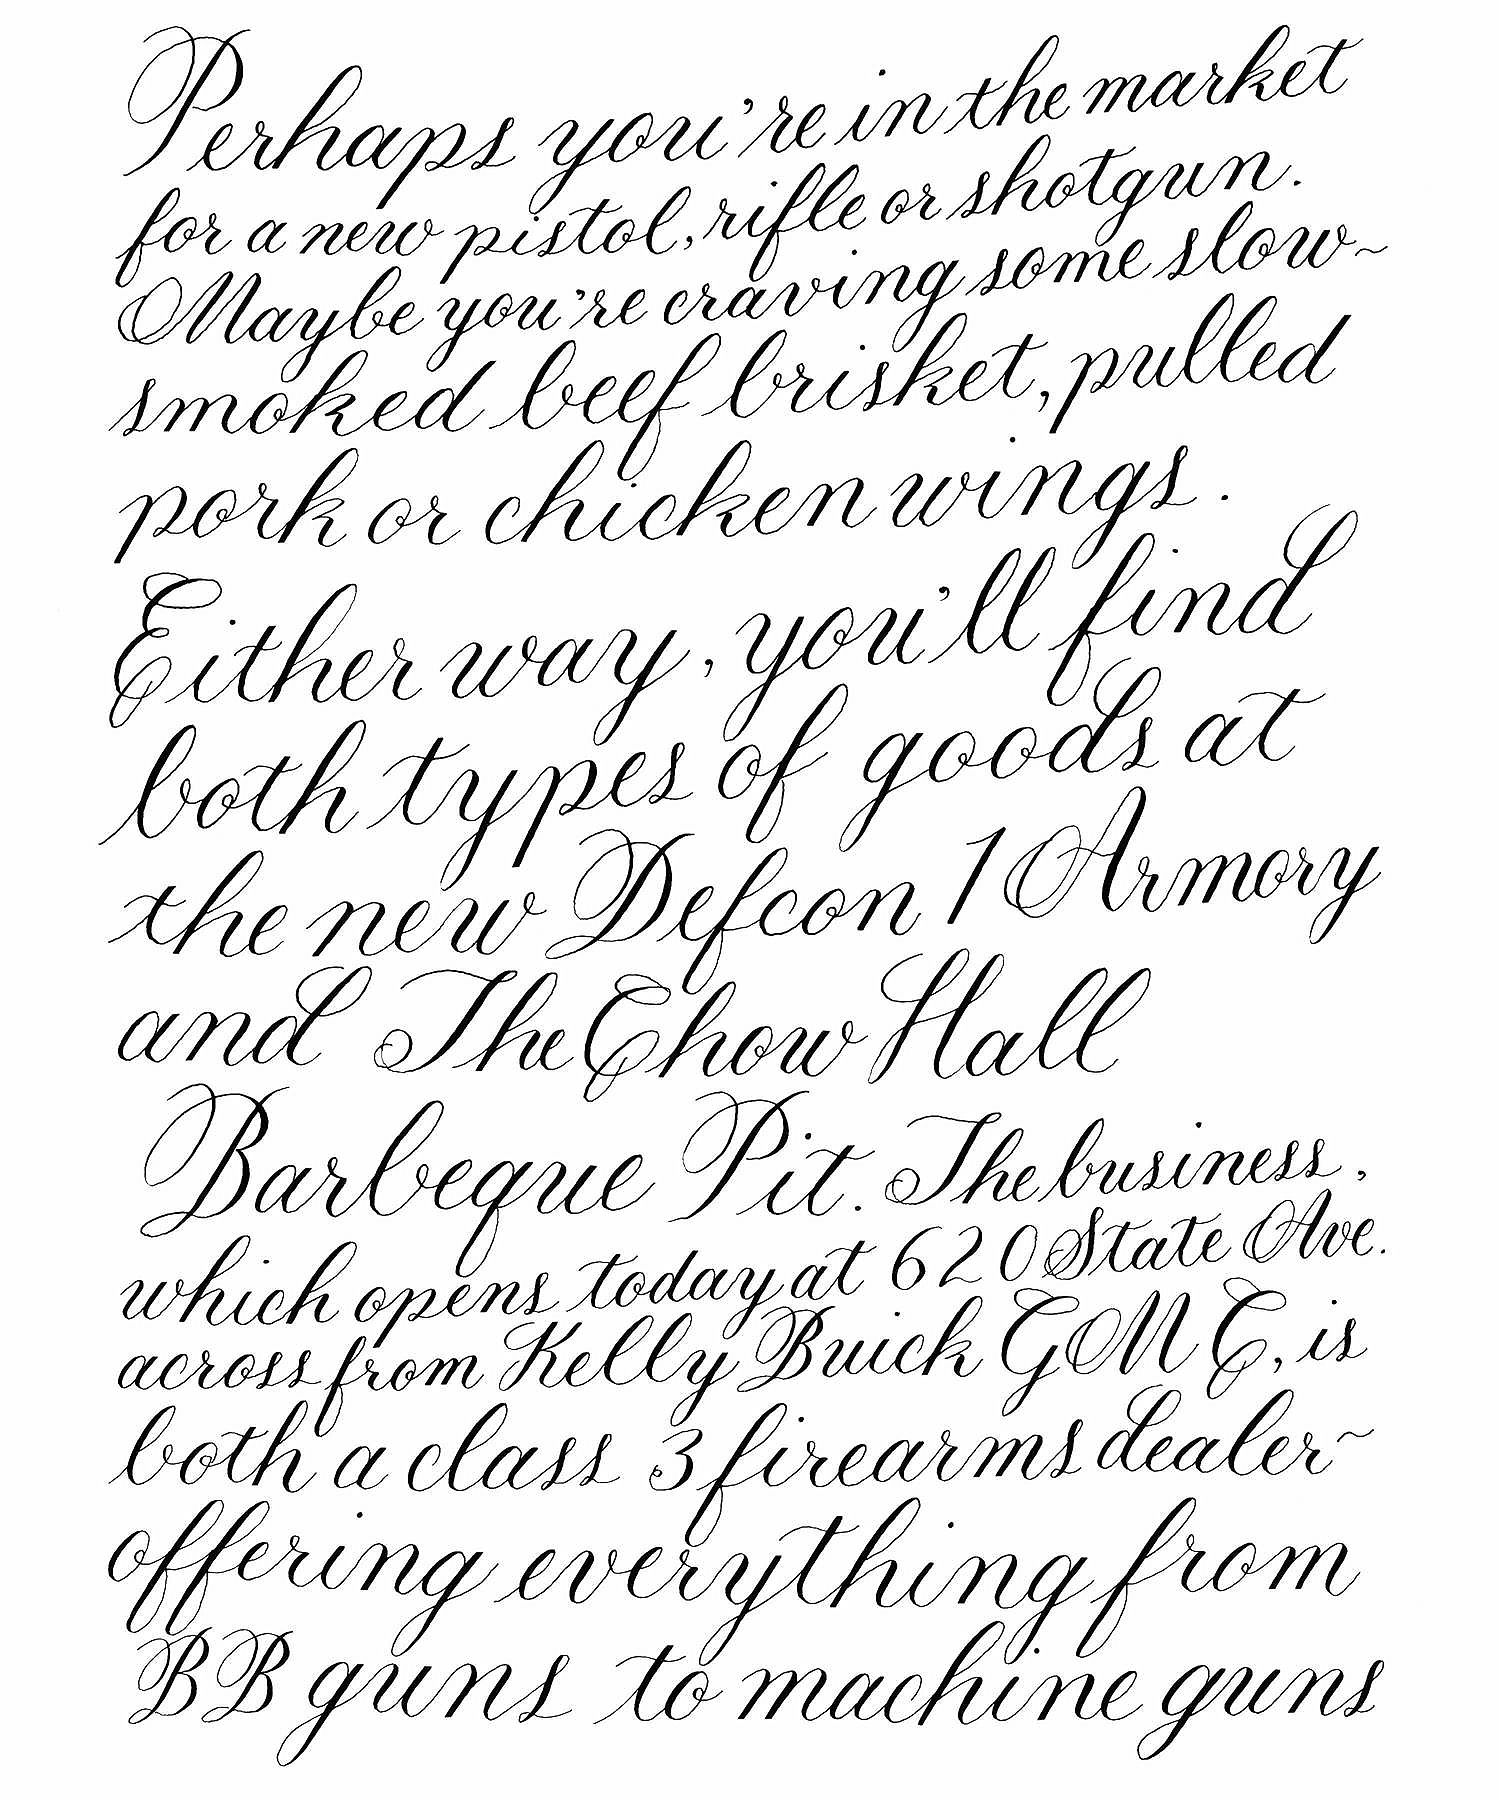 Perhaps you're in the market
for a new pistol, rifle or shotgun.
Maybe you're craving some slow~
smoked beef brisket, pulled
pork or chicken wings.
Either way, you'll find
both types of goods at
the new Defcon 1 Armory
and The Chow Hall
Barbeque Pit. The business,
which opens today at 620 State Ave.
across from Kelly Buick GMC, is
both a class 3 firearms dealer~
offering everything from
BB guns to machine guns